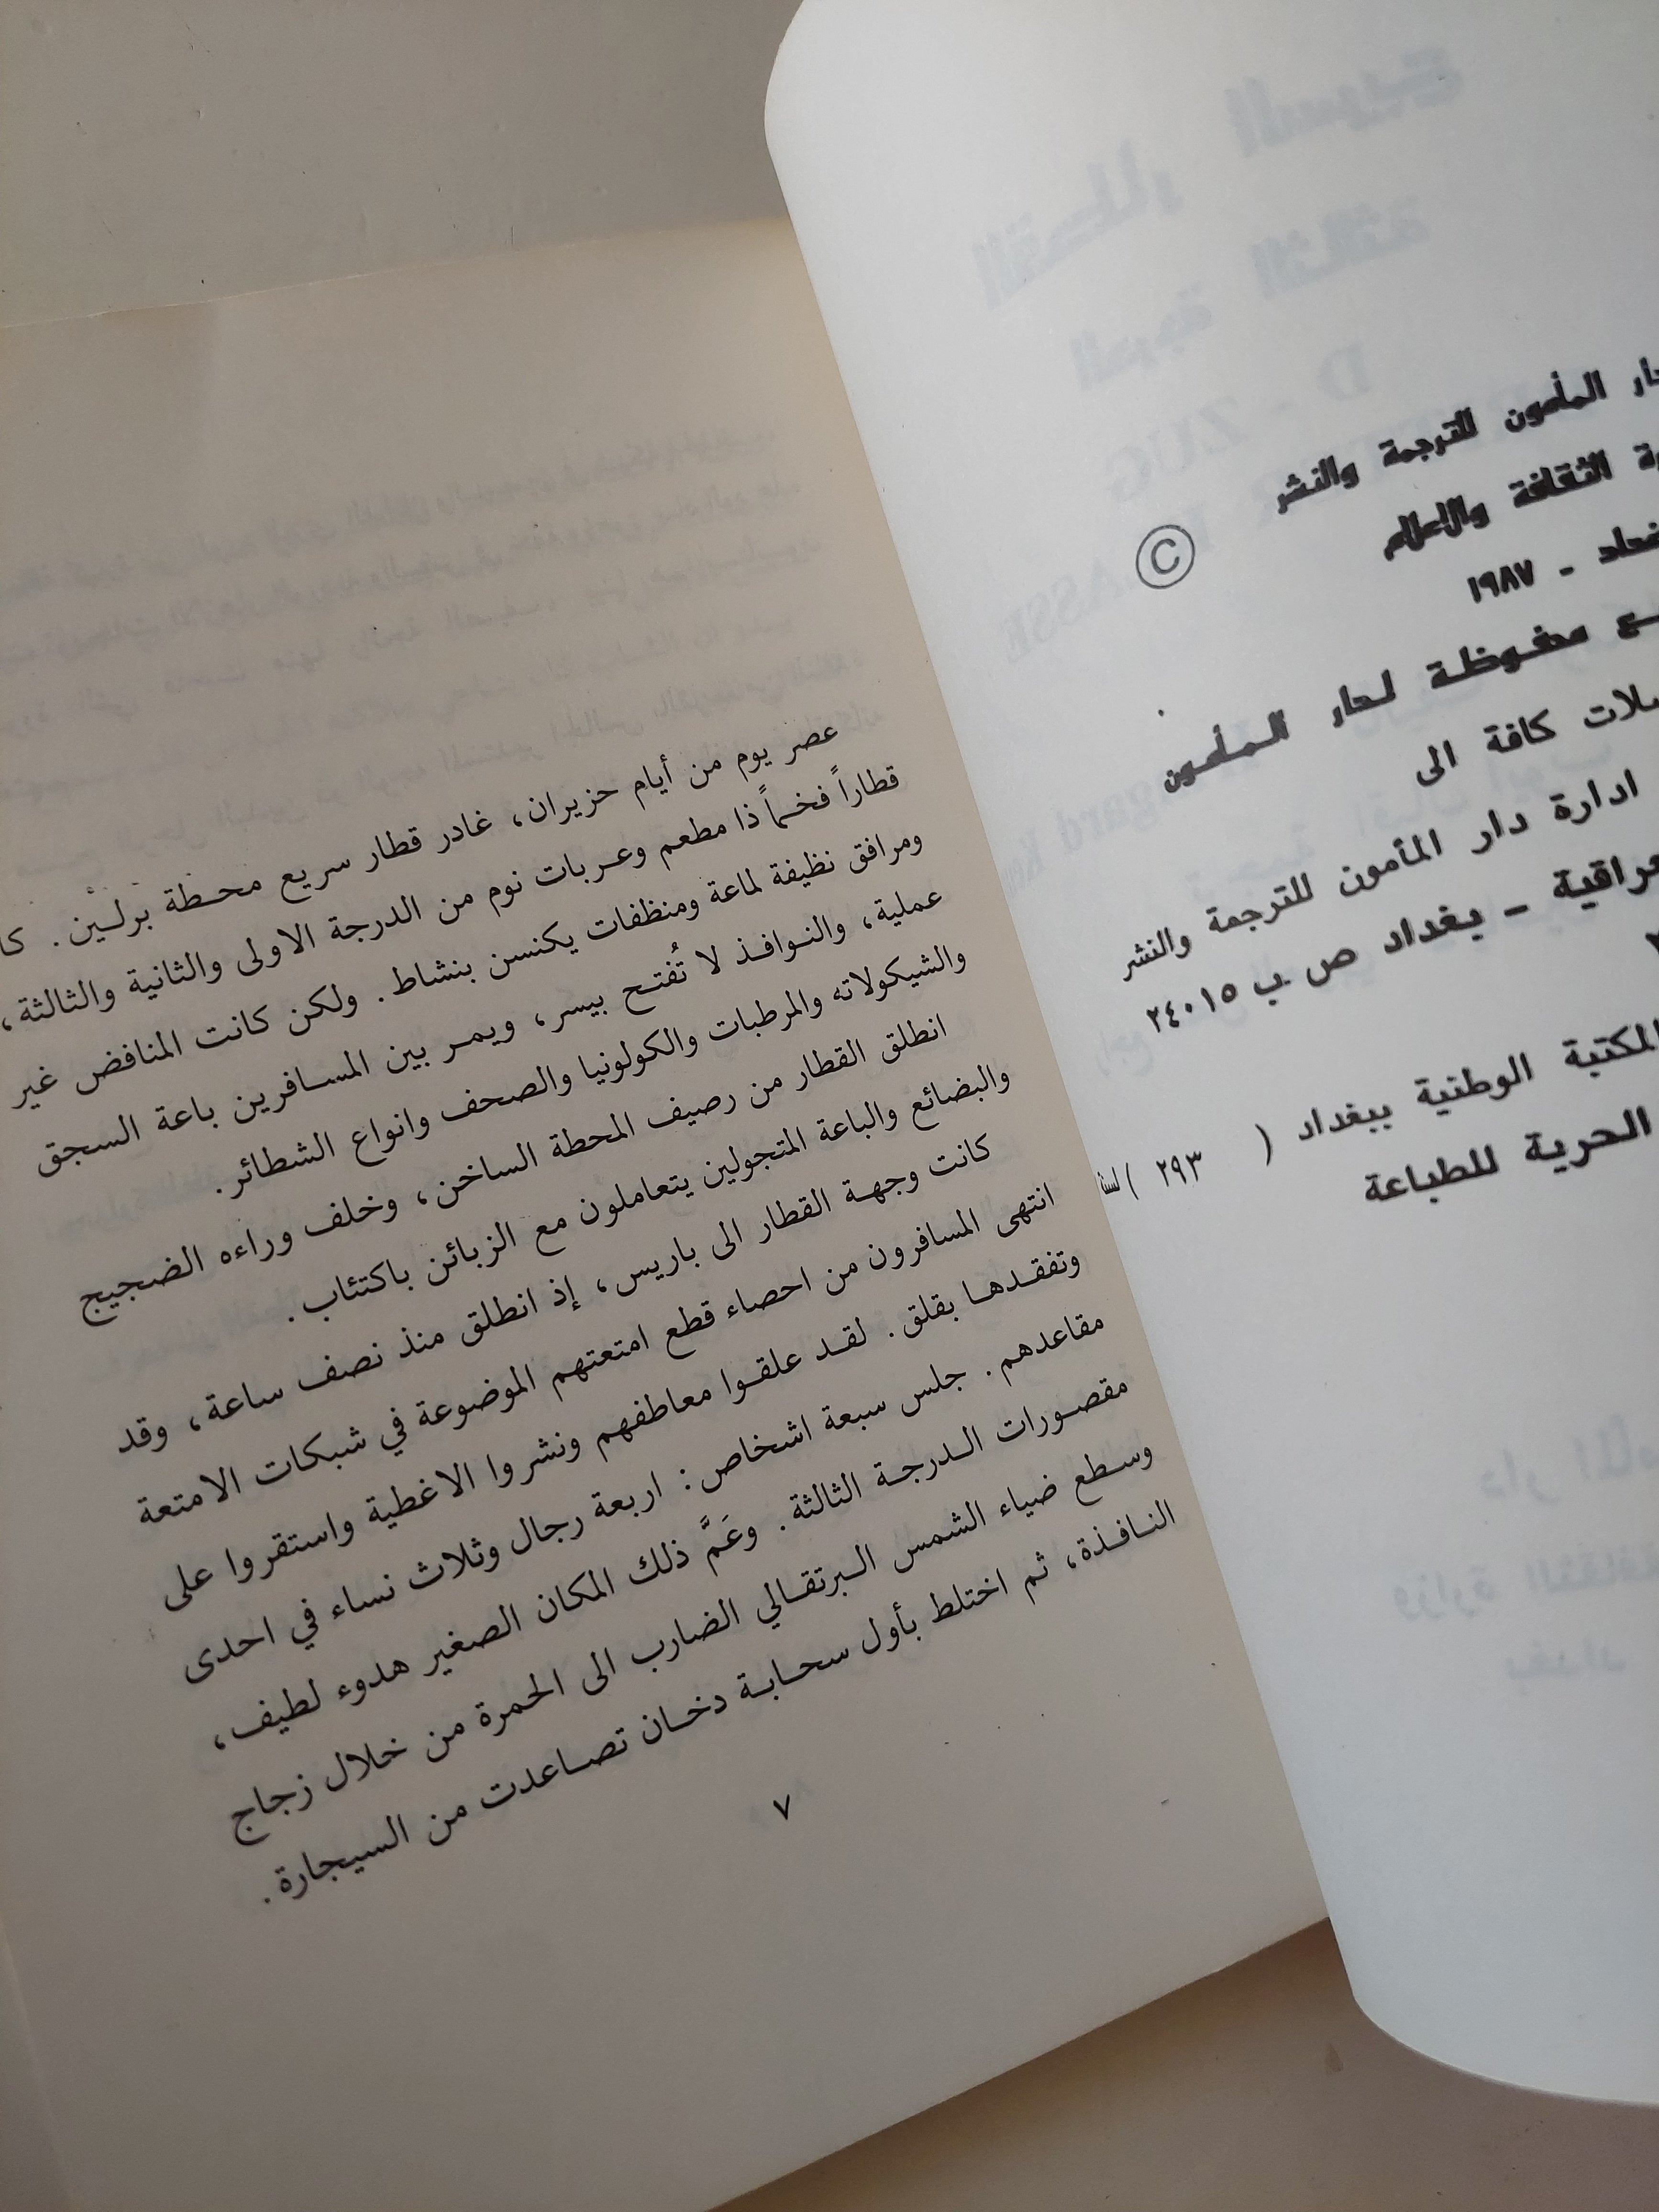 دار المأمون للترجمة والنشر
الثقافة والاعلام
©
بغداد - ١٩٨٧
محفوظة لدار المأمون
كافة الى
ادارة دار المأمون للترجمة والنشر
العراقية - بغداد ص ب ٢٤٠١٥
المكتبة الوطنية ببغداد ( ٢٩٣ ) لسنة
الحرية للطباعة
عصر يوم من أيام حزيران، غادر قطار سريع محطة برلين. كا
قطاراً فخماً ذا مطعم وعربات نوم من الدرجة الاولى والثانية والثالثة،
ومرافق نظيفة لماعة ومنظفات يكنسن بنشاط. ولكن كانت المنافض غير
عملية، والنوافذ لا تُفتح بيسر، ويمر بين المسافرين باعة السجق
والشيكولاته والمرطبات والكولونيا والصحف وانواع الشطائر.
انطلق القطار من رصيف المحطة الساخن، وخلف وراءه الضجيج
والبضائع والباعة المتجولين يتعاملون مع الزبائن باكتئاب.
كانت وجهة القطار الى باريس، إذ انطلق منذ نصف ساعة، وقد
انتهى المسافرون من احصاء قطع امتعتهم الموضوعة في شبكات الامتعة
وتفقدها بقلق. لقد علقوا معاطفهم ونشروا الاغطية واستقروا على
مقاعدهم. جلس سبعة اشخاص: اربعة رجال وثلاث نساء في احدى
مقصورات الدرجة الثالثة. وعَمَّ ذلك المكان الصغير هدوء لطيف،
وسطع ضياء الشمس البرتقالي الضارب الى الحمرة من خلال زجاج
النافذة، ثم اختلط بأول سحابة دخان تصاعدت من السيجارة.
٧